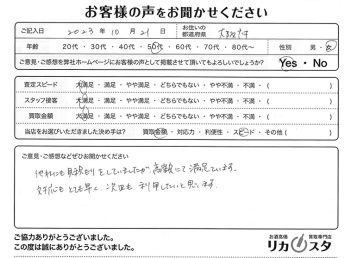 お客様の声をお聞かせください
ご記入日 2023年 10月 21日 お住いの都道府県 大阪府
年齢 20代 ・ 30代 ・ 40代 ・ 50代 ・ 60代 ・ 70代 ・ 80代〜 性別 男 ・ 女
ご意見・ご感想を弊社ホームページにお客様の声として掲載させて頂いてもよろしいでしょうか? Yes ・ No
査定スピード 大満足 ・ 満足 ・ やや満足 ・ どちらでもない ・ やや不満 ・ 不満 ・ ( )
スタッフ接客 大満足 ・ 満足 ・ やや満足 ・ どちらでもない ・ やや不満 ・ 不満 ・ ( )
買取金額 大満足 ・ 満足 ・ やや満足 ・ どちらでもない ・ やや不満 ・ 不満 ・ ( )
当店をお選びいただきました決め手は? 買取金額 ・ 対応力 ・ 利便性 ・ スピード ・ その他 ( )
ご意見・ご感想などぜひお聞かせください
他社にも見積りをしていましたが、高額にて満足しています。
対応もとても早く、次回も利用したいと思います。
ご協力ありがとうございました。
この度は誠にありがとうございました。
お酒高価買取専門店
リカスタ